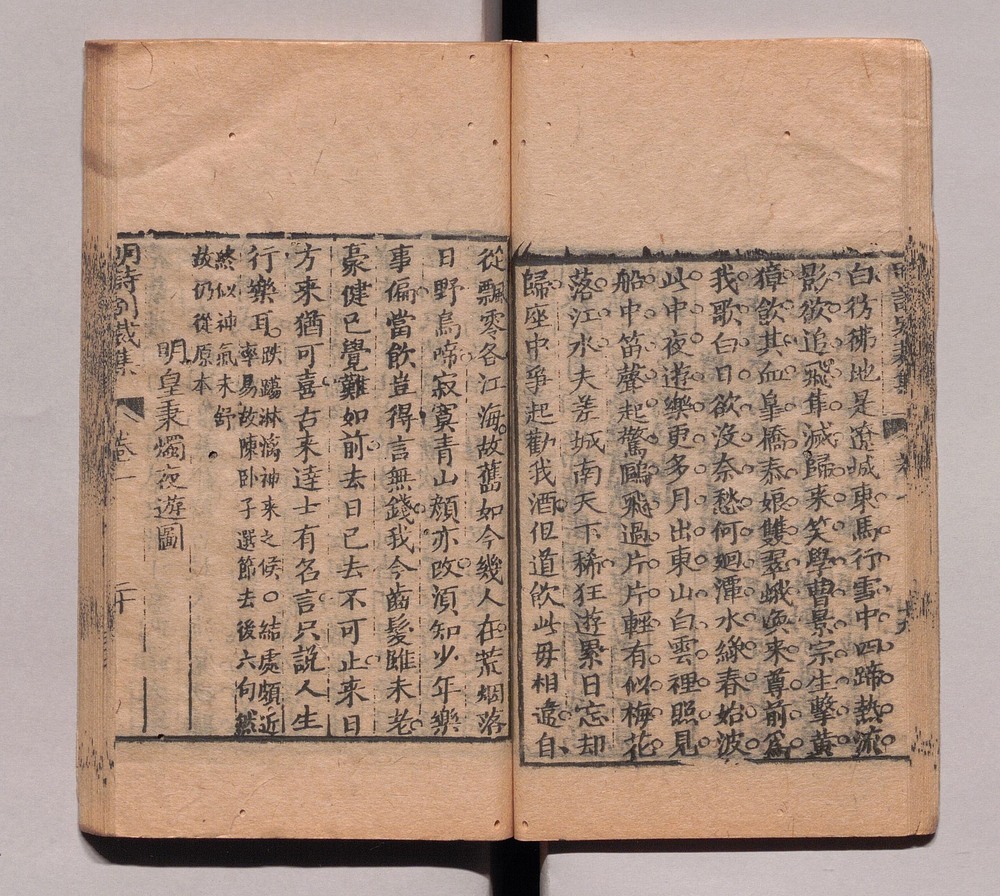 白彷彿地是遼城東馬行雪中四蹄熱流
影欲追飛隼滅歸來笑學曹景宗生擊黃
獐飲其血皐橋泰娘雙翠蛾喚来尊前為
我歌白日欲沒奈愁何廻潭水綠春始波
此中夜遊樂更多月出東山白雲裡照見
船中笛聲起驚鷗飛過片片輕有似梅花
落江水夫差城南天下稀狂遊累日忘却
歸座中爭起勸我酒但道飲此毋相違自
從飄零各江海故舊如今幾人在荒烟落
日野烏啼寂寞青山顏亦改須知少年樂
事偏當飲豈得言無錢我今齒髮雖未老
豪健已覺難如前去日已去不可止来日
方来猶可喜古来達士有名言只説人生
行樂耳
跌蕩淋漓神来之候○結處頗近
率易故陳卧子選節去後六句然
終似神氣未舒
故仍從原本
明皇秉燭夜遊圖
明詩別裁集
卷一
二十